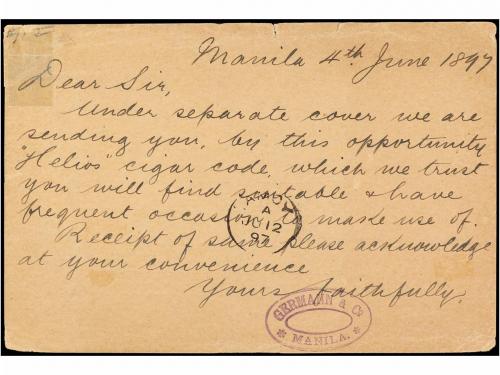 Manila 4th June 1897
Dear Sir,
Under separate cover we are
sending you, by this opportunity
"Helios" cigar code, which we trust
you will find suitable & have
frequent occasion to make use of.
Receipt of same please acknowledge
at your convenience
Yours faithfully,
A
JU 12
97
GERMANN & Co
MANILA.